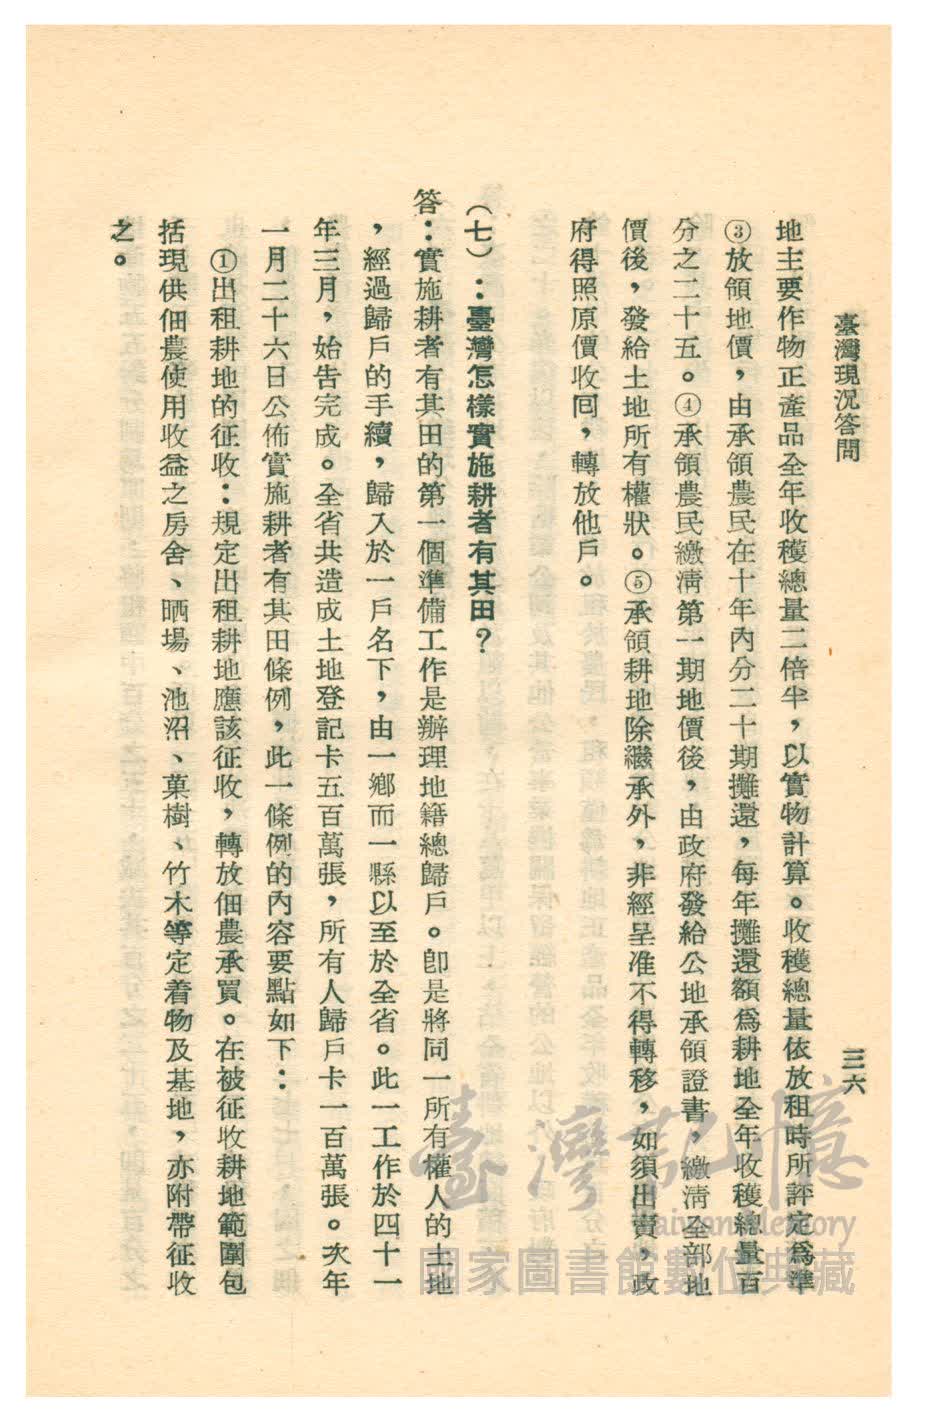 臺灣現況答問
三六
地主要作物正產品全年收穫總量二倍半，以實物計算。收穫總量依放租時所評定爲準
③放領地價，由承領農民在十年內分二十期攤還，每年攤還額爲耕地全年收穫總量百
分之二十五。④承領農民繳清第一期地價後，由政府發給公地承領證書，繳清全部地
價後，發給土地所有權狀。⑤承領耕地除繼承外，非經呈准不得轉移，如須出賣，政
府得照原價收囘，轉放他戶。
（七）：臺灣怎樣實施耕者有其田？
答：實施耕者有其田的第一個準備工作是辦理地籍總歸戶。卽是將同一所有權人的土地
，經過歸戶的手續，歸入於一戶名下，由一鄉而一縣以至於全省。此一工作於四十一
年三月，始告完成。全省共造成土地登記卡五百萬張，所有人歸戶卡一百萬張。次年
一月二十六日公佈實施耕者有其田條例，此一條例的內容要點如下：
①出租耕地的征收：規定出租耕地應該征收，轉放佃農承買。在被征收耕地範圍包
括現供佃農使用收益之房舍、晒場、池沼、菓樹、竹木等定着物及基地，亦附帶征收
之。
臺灣記憶
Taiwan Memory
國家圖書館數位典藏